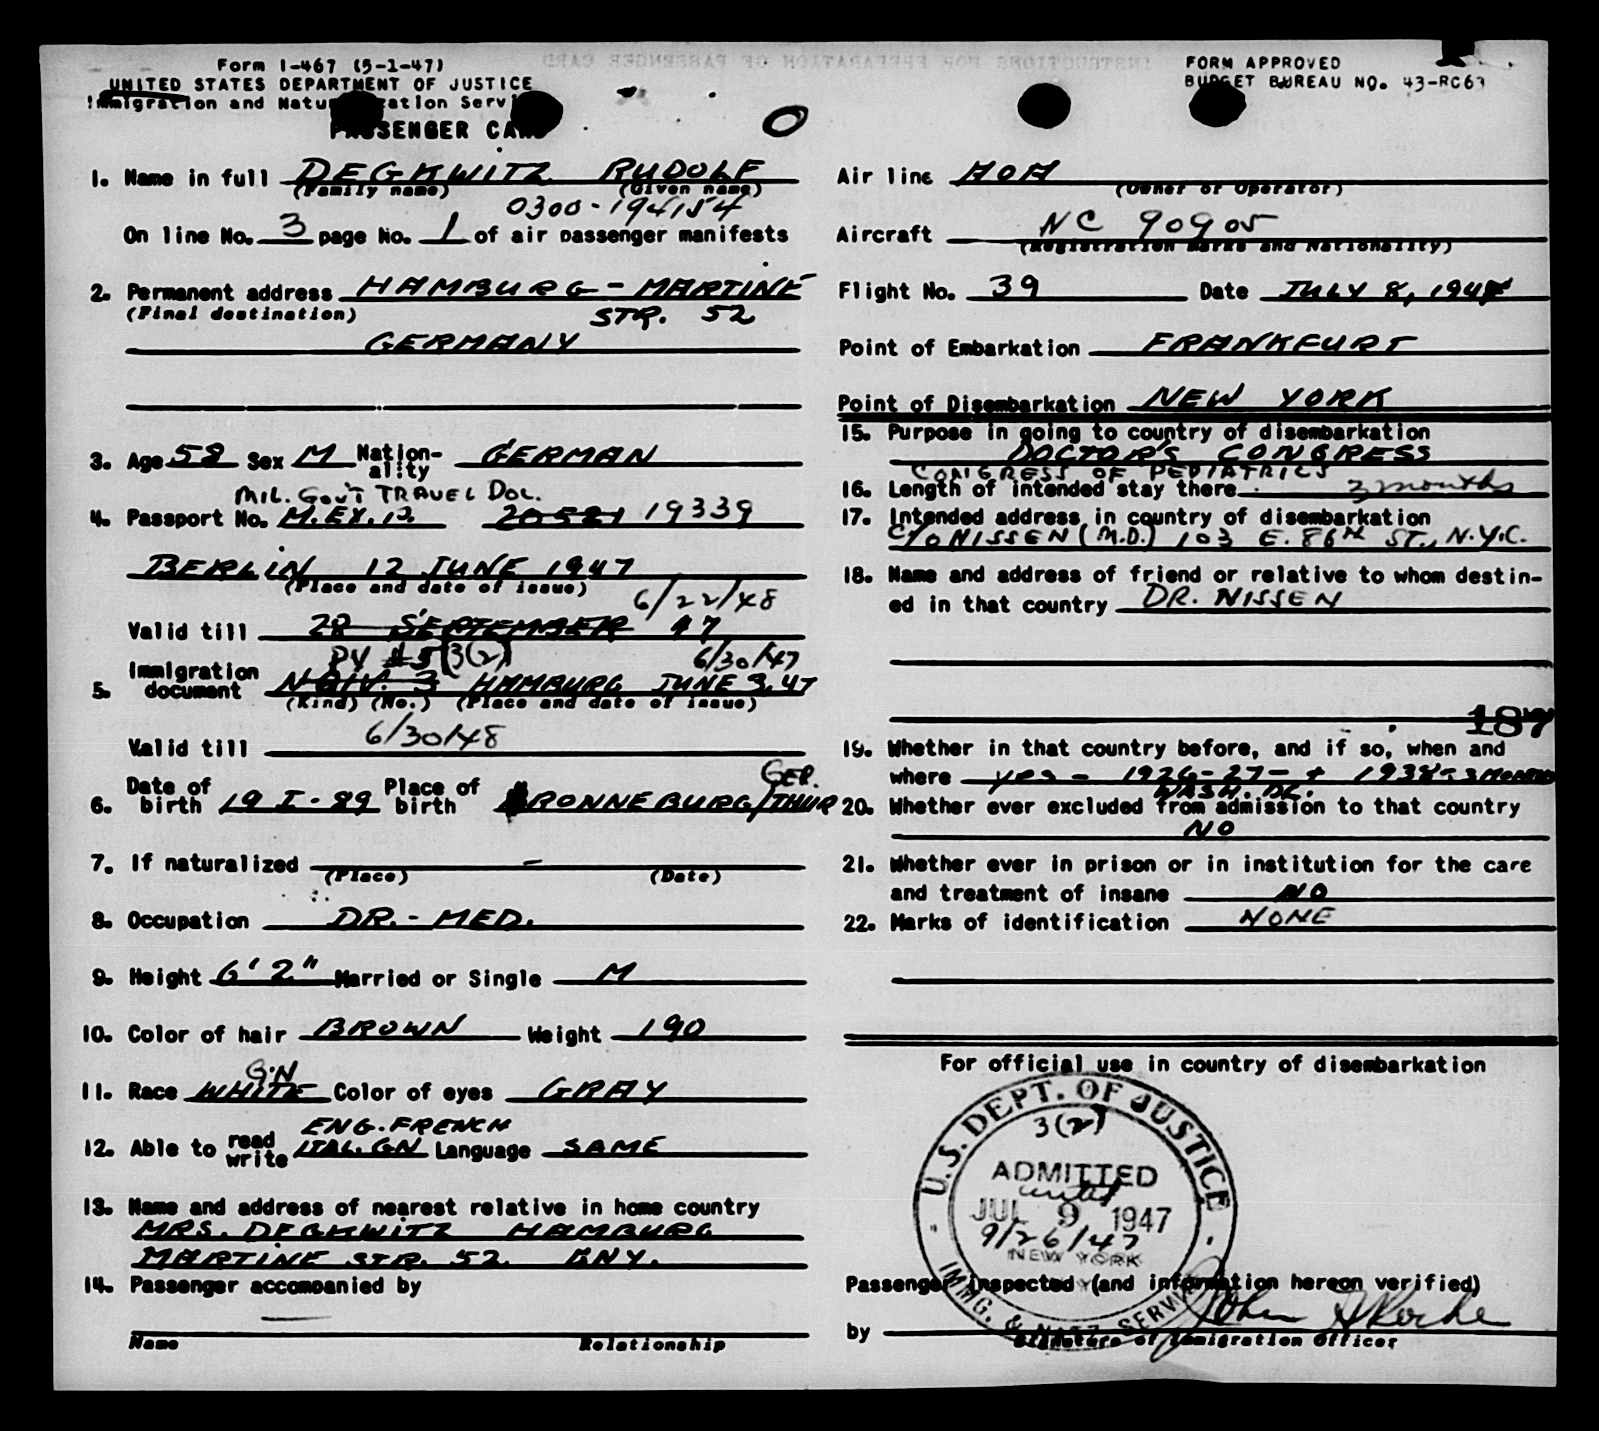 Form I-467 (5-1-47)
UNITED STATES DEPARTMENT OF JUSTICE
Immigration and Naturalization Service
PASSENGER CARD
FORM APPROVED
BUDGET BUREAU NO. 43-RC63
1. Name in full DEGKWITZ RUDOLF
(Family name) (Given name)
0300-194154
On line No. 3 page No. 1 of air passenger manifests
2. Permanent address HAMBURG - MARTINE
(Final destination) STR. 52
GERMANY
3. Age 58 Sex M Nation-ality GERMAN
MIL. GOV'T TRAVEL DOC.
4. Passport No. M.EX.P. 20581 19339
BERLIN 12 JUNE 1947
(Place and date of issue)
6/22/48
Valid till 28 SEPTEMBER 47
PV #5 3(2) 6/30/47
5. Immigration document DIV. 3 HAMBURG JUNE 3, 47
(Kind) (No.) (Place and date of issue)
Valid till 6/30/48
GER.
6. Date of birth 19 I-89 Place of birth RONNEBURG/THUR
7. If naturalized -
(Place) (Date)
8. Occupation DR.- MED.
9. Height 6'2" Married or Single M
10. Color of hair BROWN Weight 190
G.N
11. Race WHITE Color of eyes GRAY
ENG. FRENCH
12. Able to read write ITAL. GN Language SAME
13. Name and address of nearest relative in home country
MRS. DEGKWITZ HAMBURG
MARTINE STR. 52. GNY.
14. Passenger accompanied by
Name Relationship
Air line AOA
(Owner or Operator)
Aircraft NC 90905
(Registration marks and Nationality)
Flight No. 39 Date JULY 8, 194
Point of Embarkation FRANKFURT
Point of Disembarkation NEW YORK
15. Purpose in going to country of disembarkation
DOCTOR'S CONGRESS
CONGRESS OF PEDIATRICS
16. Length of intended stay there 3 months
17. Intended address in country of disembarkation
C/O NISSEN (M.D.) 103 E. 86TH ST., N.Y.C.
18. Name and address of friend or relative to whom destin-
ed in that country DR. NISSEN
187
19. Whether in that country before, and if so, when and
where yes - 1926-27- + 1938 - 3 MONTHS
WASH. DC.
20. Whether ever excluded from admission to that country
NO
21. Whether ever in prison or in institution for the care
and treatment of insane NO
22. Marks of identification NONE
For official use in country of disembarkation
U.S. DEPT. OF JUSTICE
3(2)
ADMITTED
until
JUL 9 1947
9/26/47
NEW YORK
N.Y.
IMMG. & NATZ. SERVICE
Passenger inspected (and information hereon verified)
by John
Signature of Immigration Officer